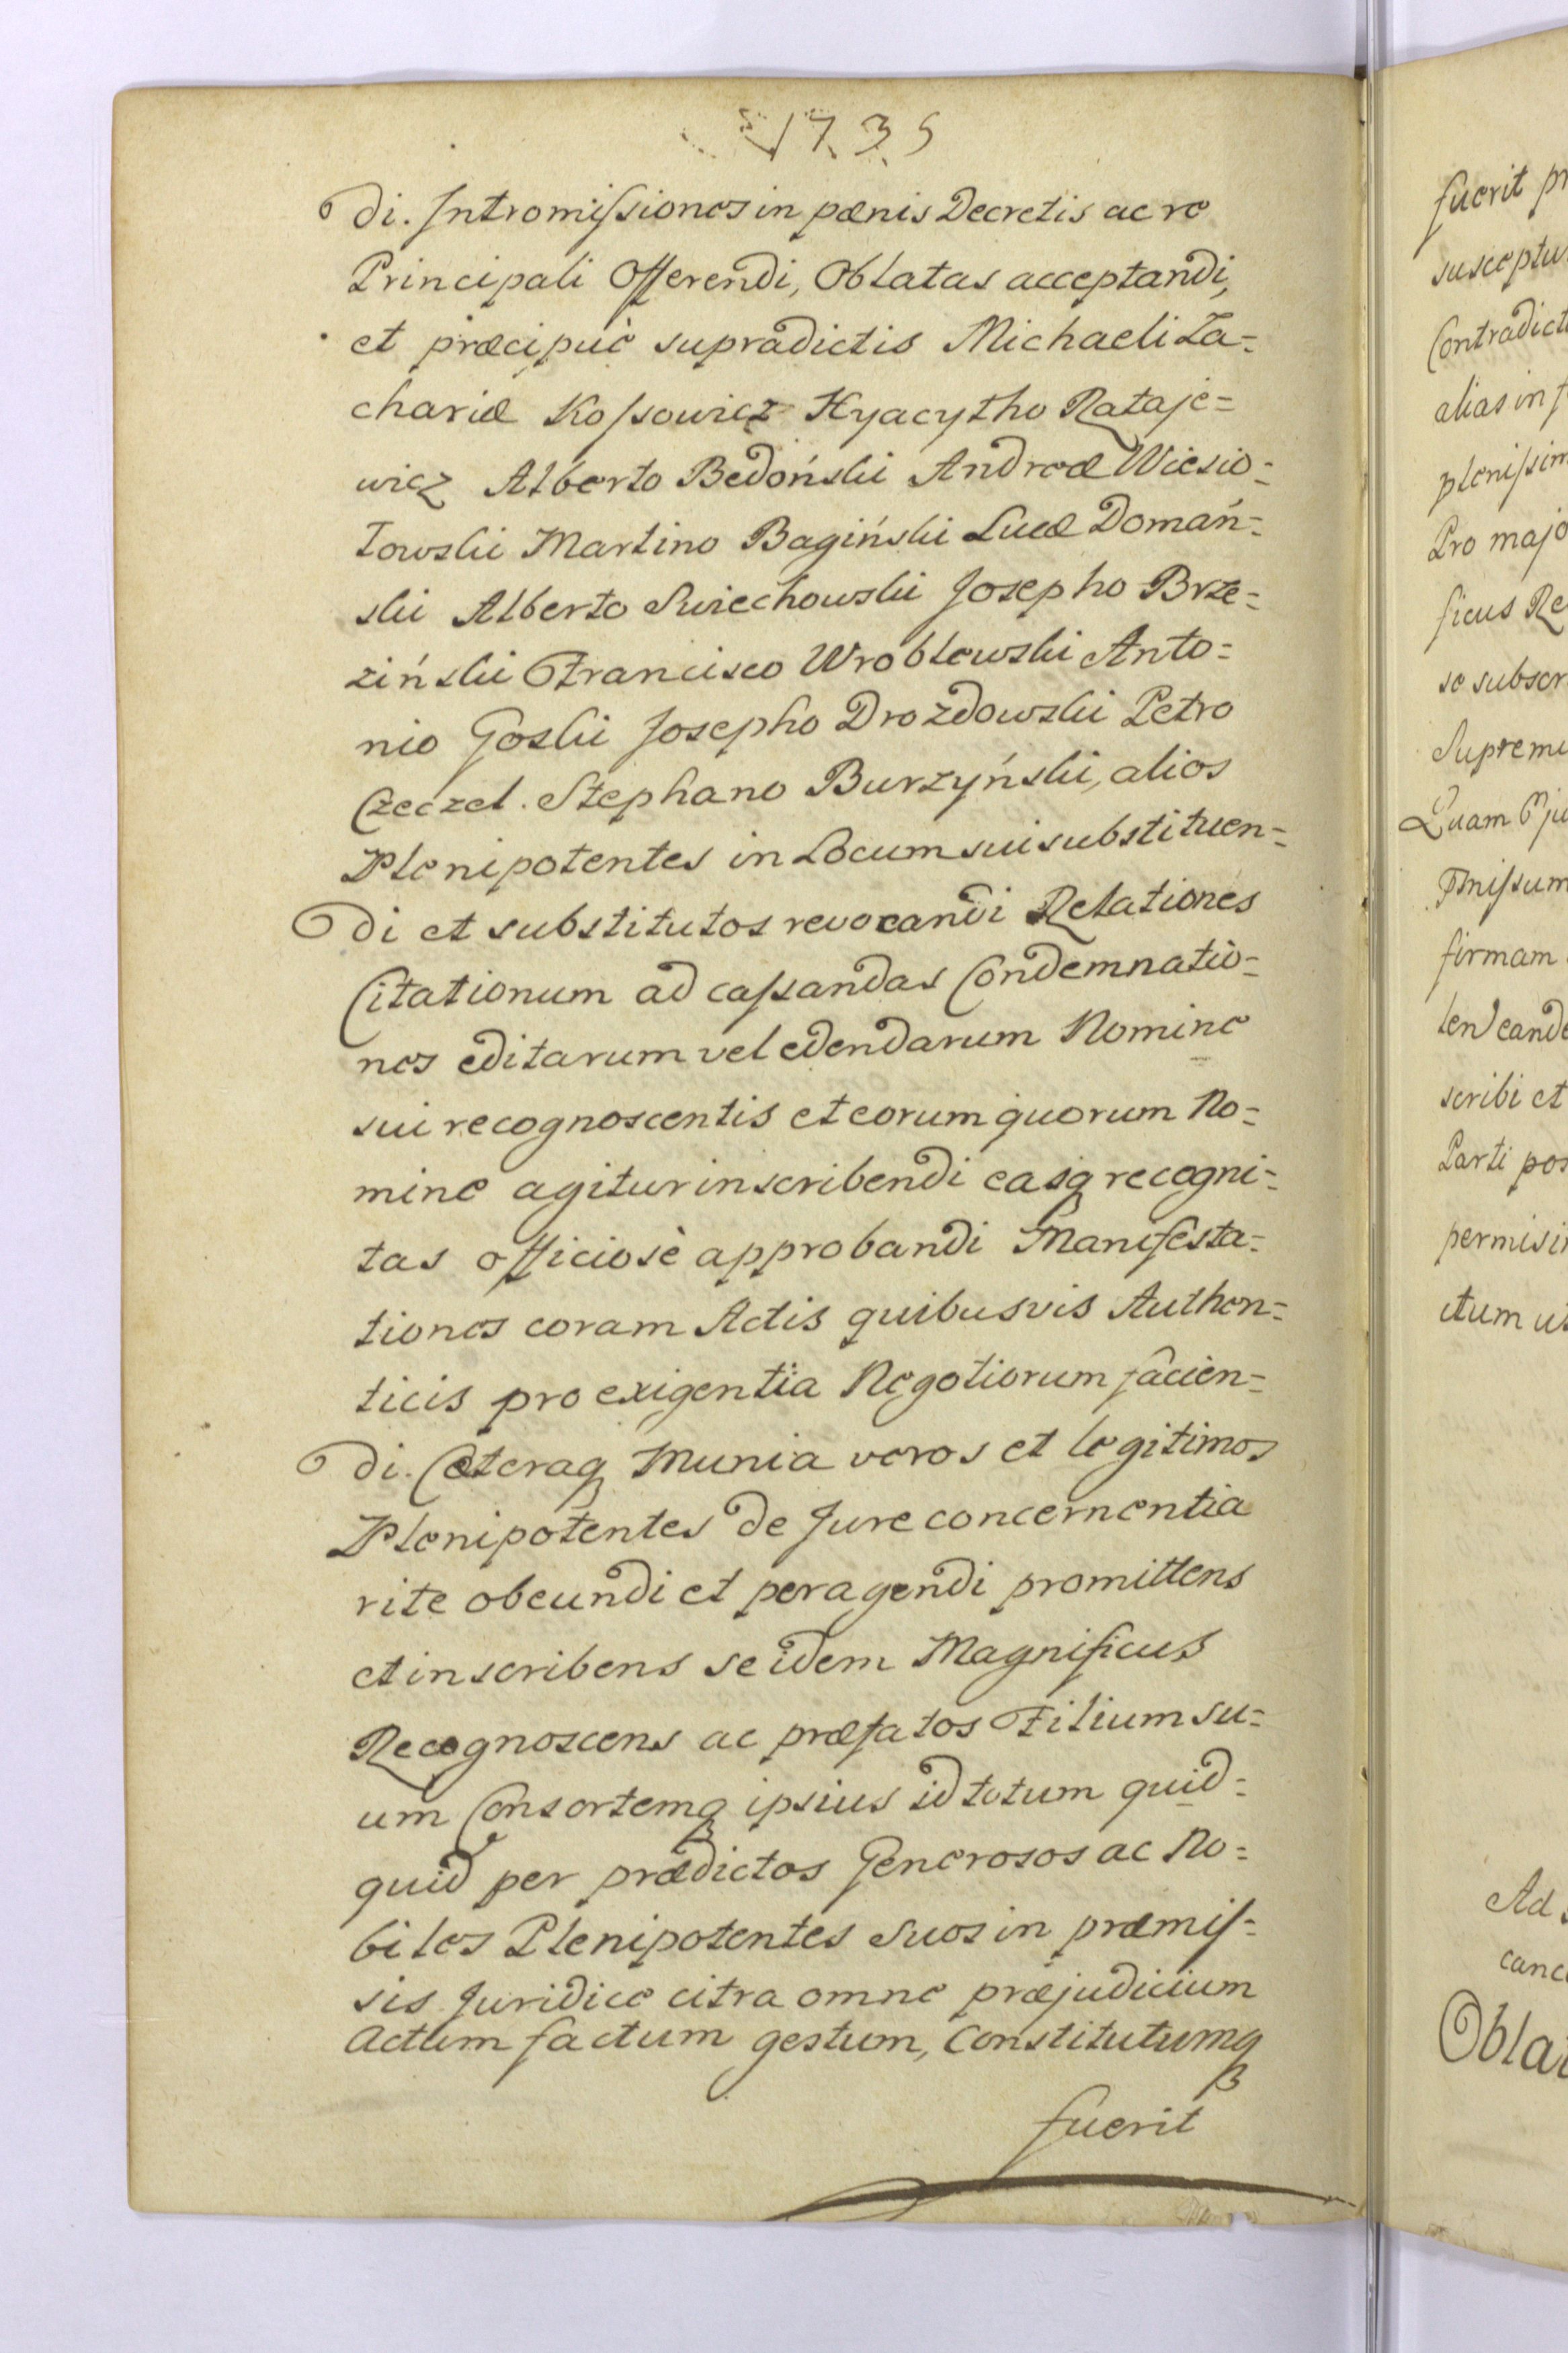 1735
di. Intromiſsiones in pænis Decretis ac re
Principali Offerendi, Oblatas acceptandi,
et præcipuè supradictis Michaeli Za=
chariæ Koſsowicz Hyacytho Rataje=
wicz Alberto Bedoński Andreæ Wiesio=
łowski Martino Bagiński Lucæ Domań=
ski Alberto Swiechowski Josepho Brze=
ziński Francisco Wroblewski Anto=
nio Goski Josepho Drozdowski Petro
Czeczel. Stephano Burzyński, alios
Plenipotentes in Locum sui substituen=
di et substitutos revocandi Relationes
Citationum ad caſsandas Condemnatio=
nes editarum vel edendarum Nomine
sui recognoscentis et eorum quorum No=
mine agitur inscribendi easq recogni=
tas officiosè approbandi Manifesta=
tiones coram Actis quibusvis Authen=
ticis pro exigentia Negotiorum fâcien=
di. Cæteraq Munia veros et legitimos
Plenipotentes de Jure concernentia
rite obeundi et peragendi promittens
et inscribens se idem Magnificus
Recognoscens ac præfatos Filium su=
um Consortemq ipsius id totum quid=
quid per prædictos Generosos ac No=
biles Plenipotentes suos in præmiſ=
sis Juridice citra omne præjudicium
actum factum gestum, Constitutumq
fuerit
fuerit
Contradict
alias in
Pro majo
ficus Re
se subscr
Quam
firmam
scribi et
Parti pos
Ad